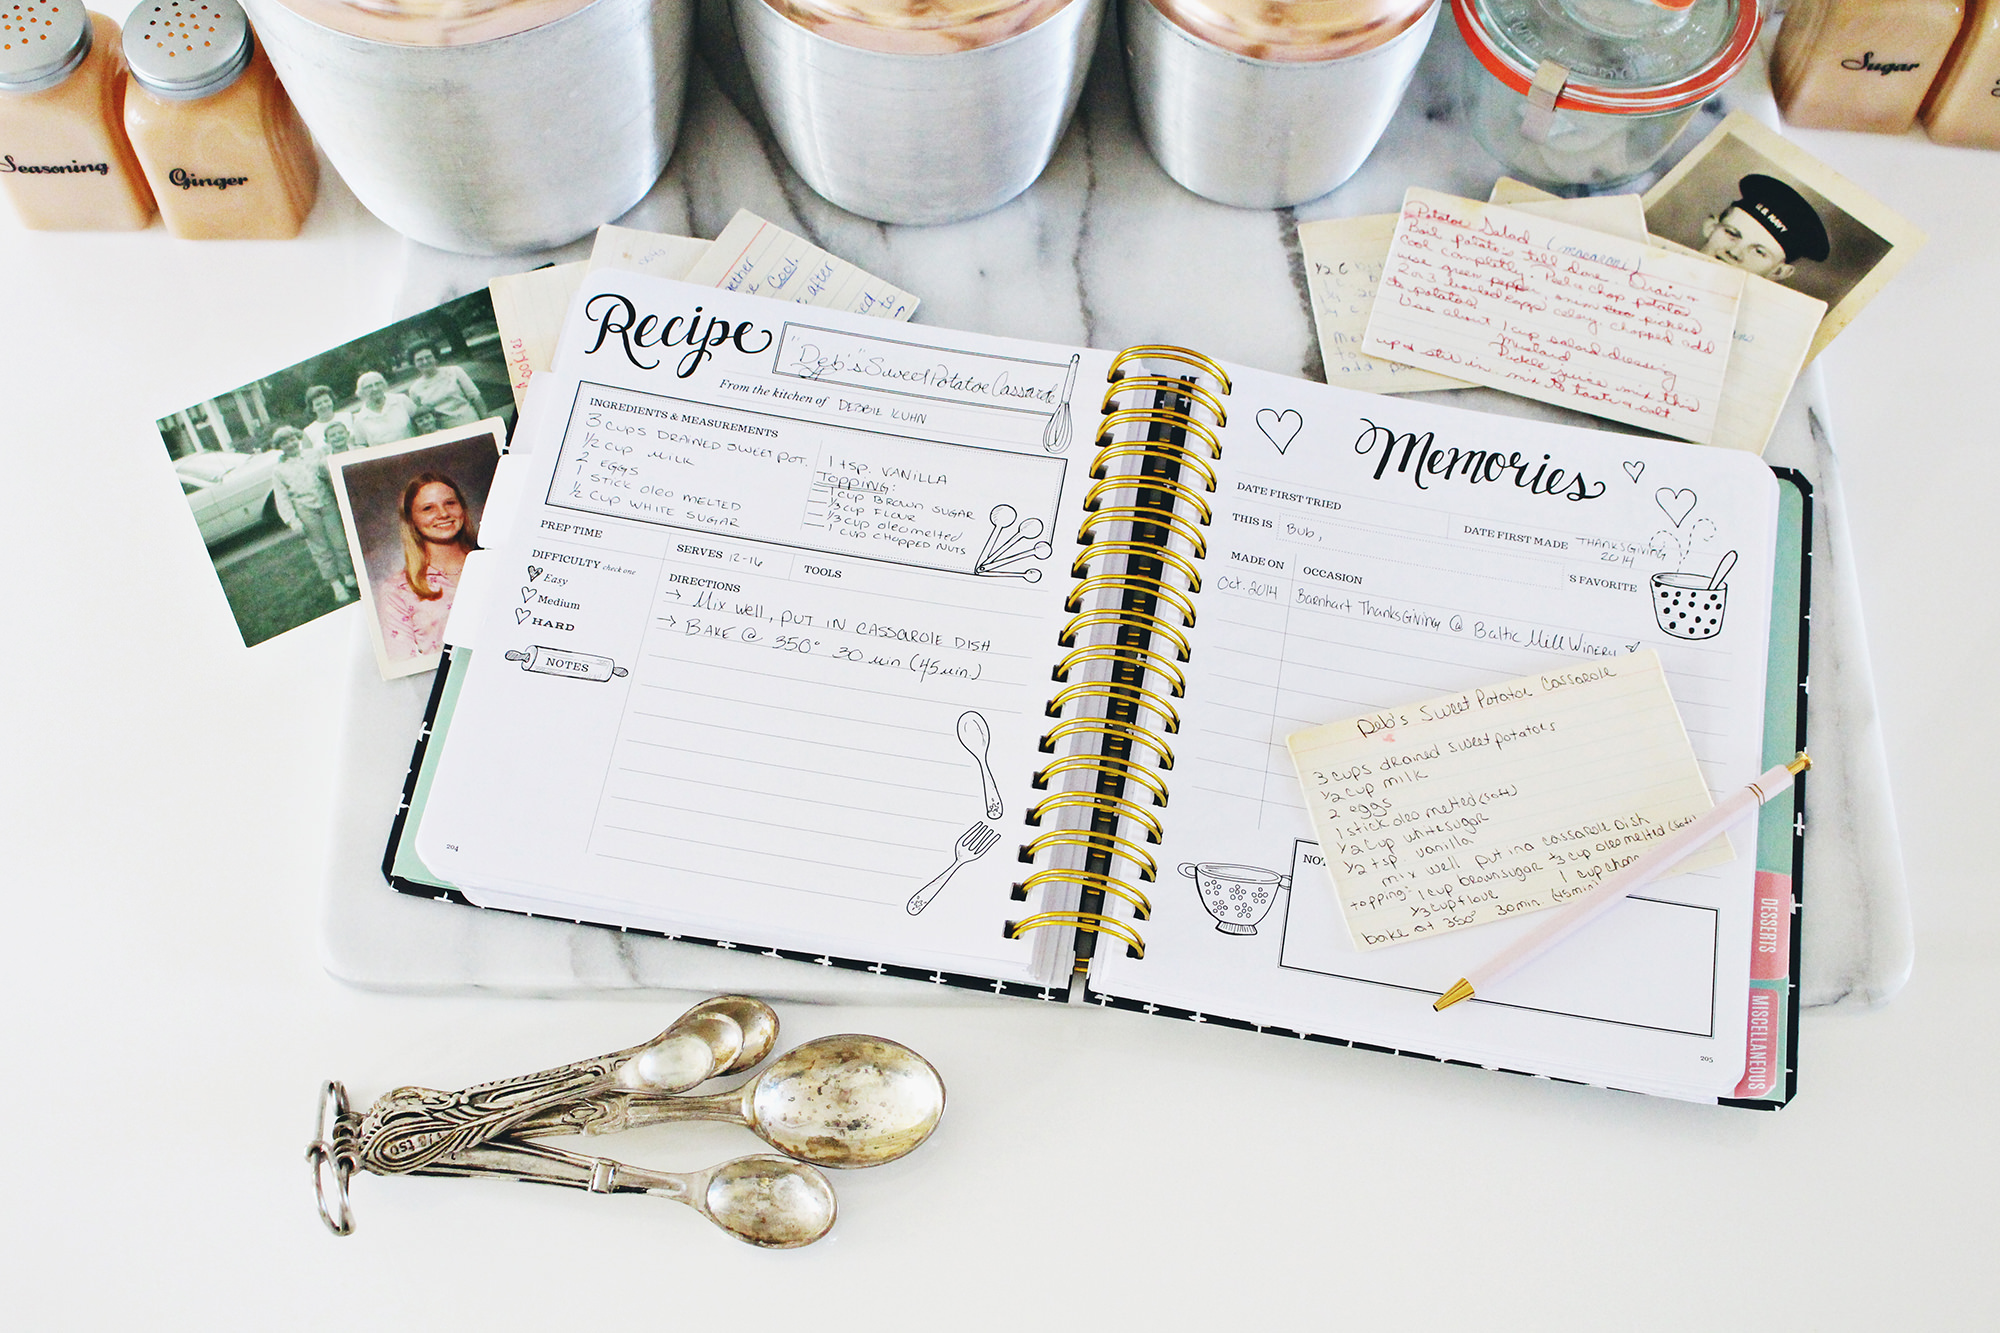 Seasoning
Ginger
Sugar
U.S. NAVY
Potatoe Salad (macaroni)
Boil potato's till done. Drain &
cool completly. Peel & chop potatos
use green pepper, onion pickles
2 or 3 boiled eggs celery chopped add
to potatos
Use about 1 cup salad dressing
Mustard
Pickle juice mix this
up & stir in. mix to taste & salt.
Cool.
after
Recipe
"Deb's" Sweet Potatoe Cassarole
From the kitchen of DEBBIE KUHN
INGREDIENTS & MEASUREMENTS
3 CUPS DRAINED SWEET POT.
1/2 CUP MILK
2 EGGS
1 STICK OLEO MELTED
1/2 CUP WHITE SUGAR
1 tsp. VANILLA
TOPPING:
— 1 CUP BROWN SUGAR
— 1/3 CUP FLOUR
— 1/3 CUP oleo melted
— 1 CUP CHOPPED NUTS
PREP TIME
SERVES 12-16
TOOLS
DIFFICULTY check one
Easy
Medium
HARD
NOTES
DIRECTIONS
→ Mix well, PUT IN CASSAROLE DISH
→ BAKE @ 350° 30 min (45 min.)
204
Memories
DATE FIRST TRIED
DATE FIRST MADE THANKSGIVING
2014
THIS IS Bub,
S FAVORITE
MADE ON
OCCASION
Oct. 2014
Barnhart Thanksgiving @ Baltic Mill Winery
Deb's Sweet Potatoe Cassarole
3 cups drained sweet potatoes
1/2 cup milk
2 eggs
1 stick oleo melted (soft)
1/2 cup white sugar
1/2 tsp. vanilla
mix well put in a cassarole Dish
topping: 1 cup brown sugar 1/3 cup oleo melted (soft)
1/3 cup flour 1 cup chopp
bake at 350° 30 min. (45 min)
205
DESSERTS
MISCELLANEOUS